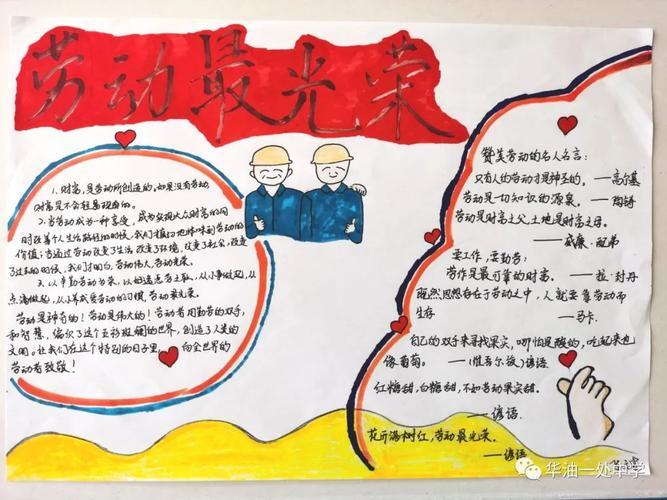 劳动最光荣
1. 财富,是劳动所创造的,如果没有劳动,
财富是不会轻易现面的。
2. 当劳动成为一种享受,成为实现大众财富的同
时改善个人生活路径的时候,我们真切地体味到劳动的
价值;当通过劳动改变了生活,改变了环境,改变了社会,改变
了过去的时候,我们才明白,劳动伟大,劳动光荣。
3. 以辛勤劳动为荣,以好逸恶劳为耻,从小事做起,从
点滴做起,从小养成爱劳动的习惯,劳动最光荣。
劳动是神奇的!劳动是伟大的!劳动者用勤劳的双手
和智慧,编织了这个五彩斑斓的世界,创造了人类的
文明。让我们在这个特别的日子里,向全世界的
劳动者致敬!
赞美劳动的名人名言:
只有人的劳动才是神圣的。——高尔基
劳动是一切知识的源泉。——陶铸
劳动是财富之父,土地是财富之母。
——威廉·配第
要工作,要勤劳:
劳作是最可靠的财富。——拉·封丹
既然思想存在于劳动之中,人就要靠劳动而
生存 ——马卡.
自己的双手来寻找果实,哪怕是酸的,吃起来也
像葡萄。——(维吾尔族)谚语
红糖甜,白糖甜,不如劳动果实甜.
——谚语.
花开满树红,劳动最光荣。
——谚语
华油一处中学